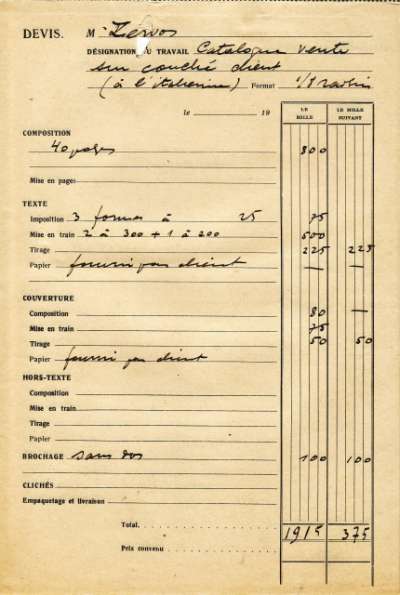 DEVIS. Mr Zervos
DÉSIGNATION DU TRAVAIL Catalogue vente
sur couché client
(à l'italienne) Format 1/8 raisin
le 19
LE MILLE LE MILLE SUIVANT
COMPOSITION
40 pages 800
Mise en pages
TEXTE
Imposition 3 formes à 25 75
Mise en train 2 à 300 + 1 à 200 500
Tirage 225 225
Papier fourni par client — —
COUVERTURE
Composition 80 —
Mise en train 75
Tirage 50 50
Papier fourni par client
HORS-TEXTE
Composition
Mise en train
Tirage
Papier
BROCHAGE sans dos 100 100
CLICHÉS
Empaquetage et livraison
Total. 1915 375
Prix convenu